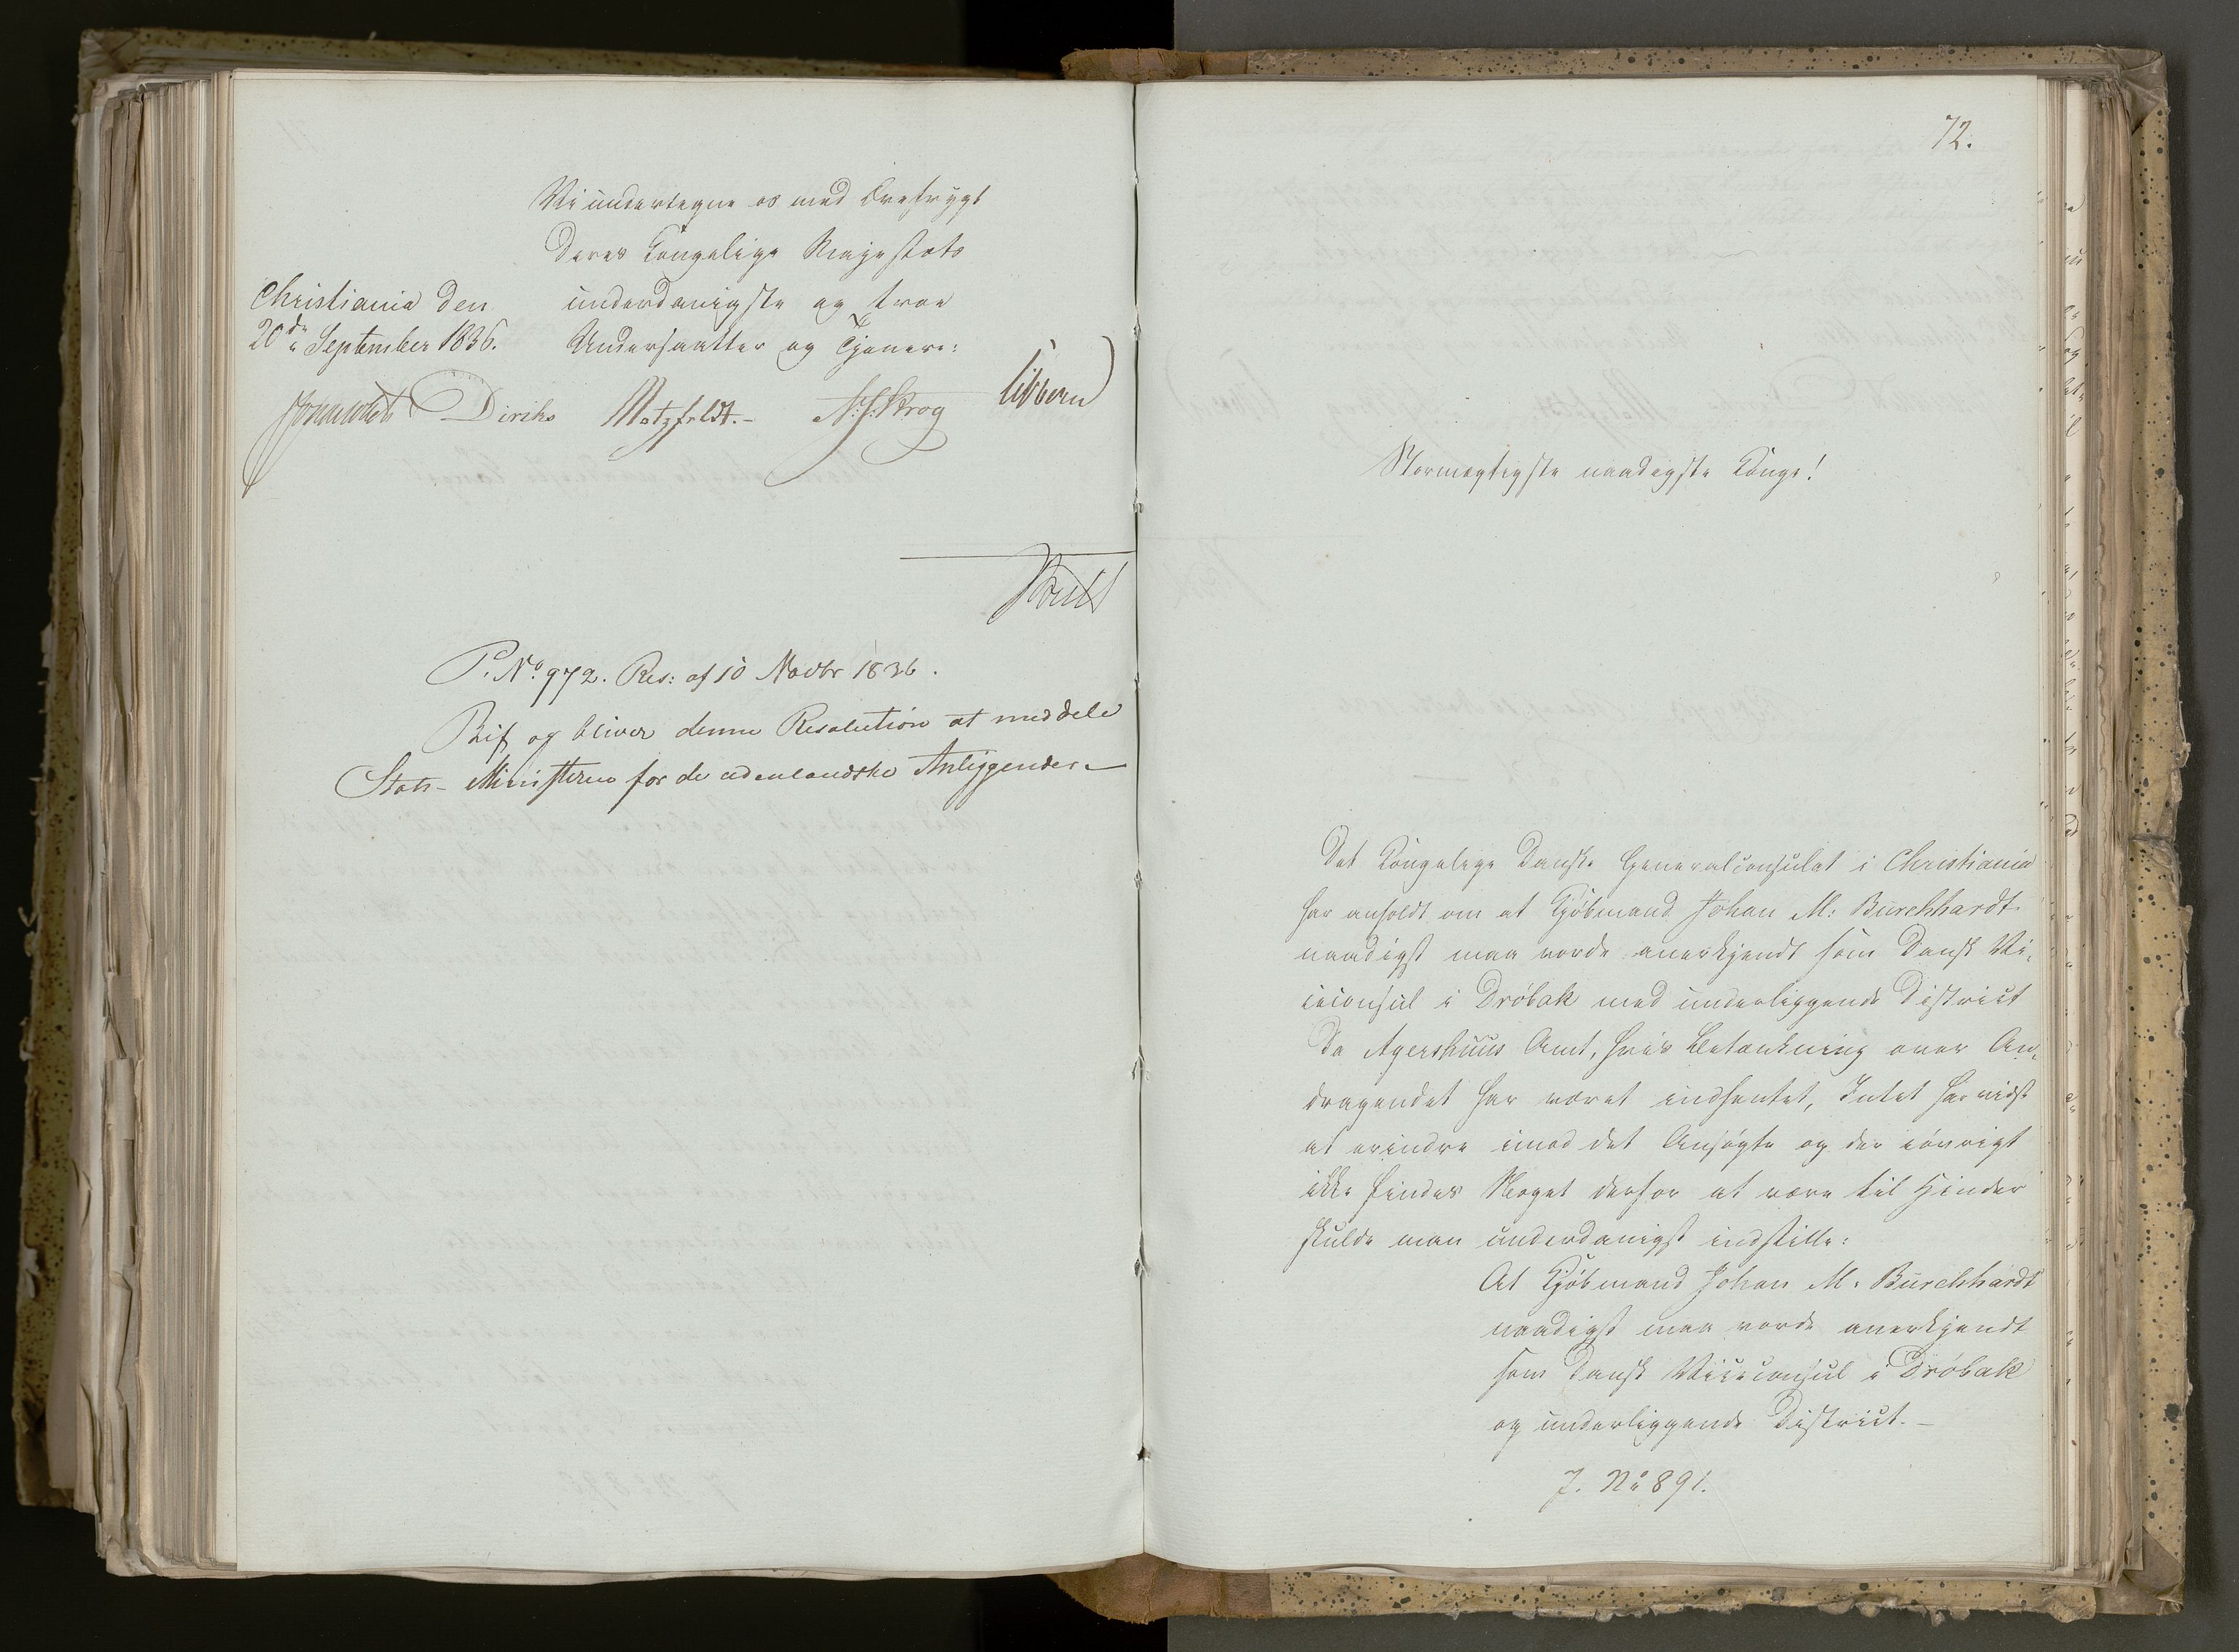 Vi undertegne os med Ærefrygt
Deres Kongelige Majestæts
Christiania den
20de September 1836.
underdanigste og troe
Undersaatter og Tjenere:
Diriks Motzfeldt.- N: J: Krog Sibbern
P. No 972. Res: af 10 Novbr 1836.
Bif og bliver denne Resolution at meddele
Stats-Ministeren for de udenlandske Anliggender.-
72.
Stormægtigste naadigste Konge!
Det Kongelige Danske Generalconsulat i Christiania
har anholdt om at Kjøbmand Johan M: Burchhardt
naadigst maa vorde anerkjendt som Dansk Vi-
ceconsul i Drøbak med underliggende District
Da Agershuus Amt, hvis Betænkning over An-
dragendet har været indhentet, Intet har vidst
at erindre imod det Ansøgte og der iøvrigt
ikke findes Noget derfor at være til Hinder
skulde man underdanigst indstille:
At Kjøbmand Johan M. Burchhardt
naadigst maa vorde anerkjendt
som Dansk Viceconsul i Drøbak
og underliggende District.-
J. No 891.